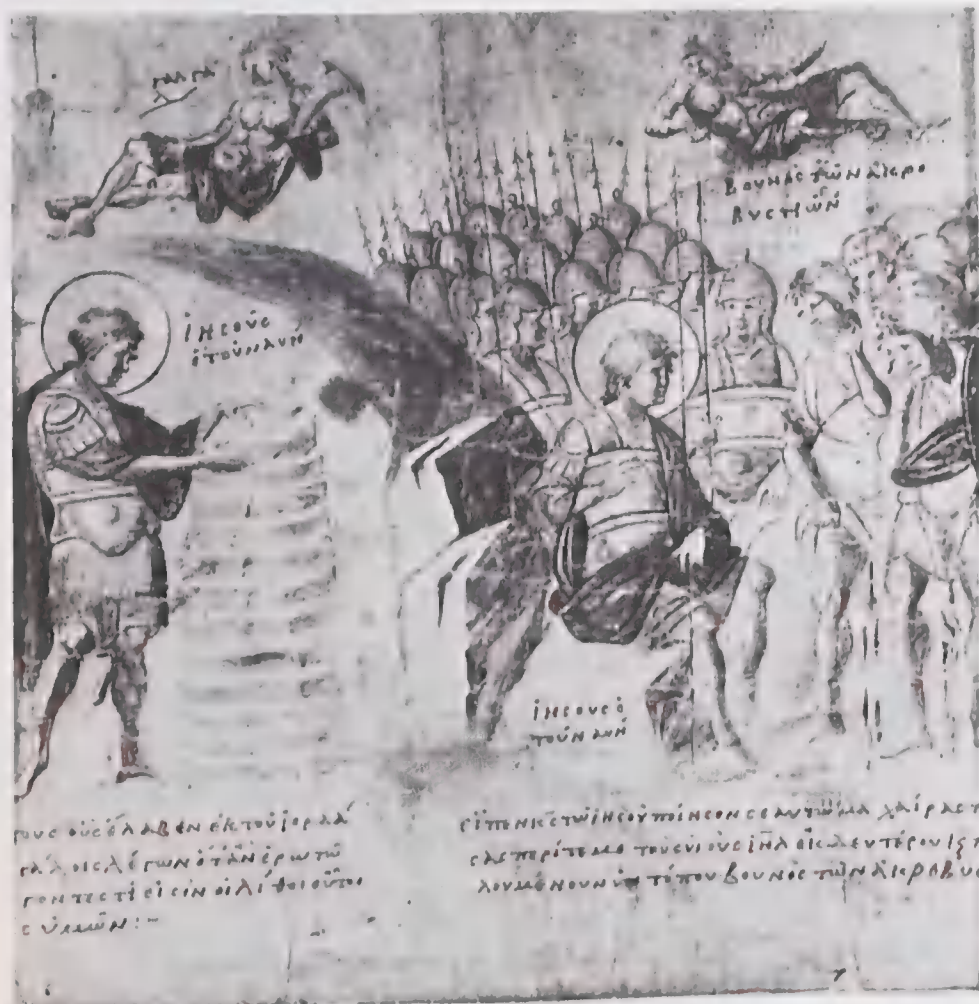 ΓΑΛΓΑ
ΒΟΥΝΟC ΤῶΝ ἀΚΡΟ
ΒΥCΤΙῶΝ
ἰΗCΟῦC
ὁ ΤΟῦ ΝΑΥΗ
ἰΗCΟῦC ὁ
ΤΟῦ ΝΑΥΗ
ΤΟΥC ΟὓC ἔΛΑΒΕΝ ἐΚ ΤΟῦ ἰΟΡΔΑ
ΓΑΛΟΙC ΛέΓΩΝ ὅΤΑΝ ἐΡΩΤῶ
ΤΙ εἰCΙΝ Οἱ ΛίΘΟΙ ΟὗΤΟΙ
ὑΜῶΝ:~
ΕἶΠΕΝ ΚC ΤῶΙ ἰΗCΟῦ ΠΟίΗCΟΝ CΕΑΥΤῶ ΜΑΧΑίΡΑC
ΠΕΡίΤΕΜΕ ΤΟὺC ΥἱΟὺC ἰΗΛ ἐΚ ΔΕΥΤέΡΟΥ
ΤόΠΟΥ ΒΟΥΝὸC ΤῶΝ ἀΚΡΟΒΥC